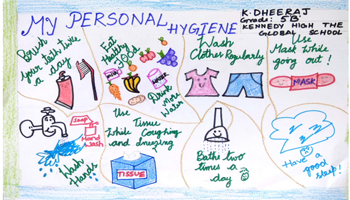 My Personal
Hygiene
K. DHEERAJ
Grade: 5B
KENNEDY HIGH THE
GLOBAL SCHOOL
Brush
your teeth twice
a day
Eat
Healthy
Food
Drink
More
Water
Wash
Clothes Regularly
Use
Mask while
going out!
MASK
Soap
Hand
Wash
Wash
Hands
Use Tissue
While Coughing
and sneezing
TISSUE
Bathe two
times a
day
Have a
good
sleep!